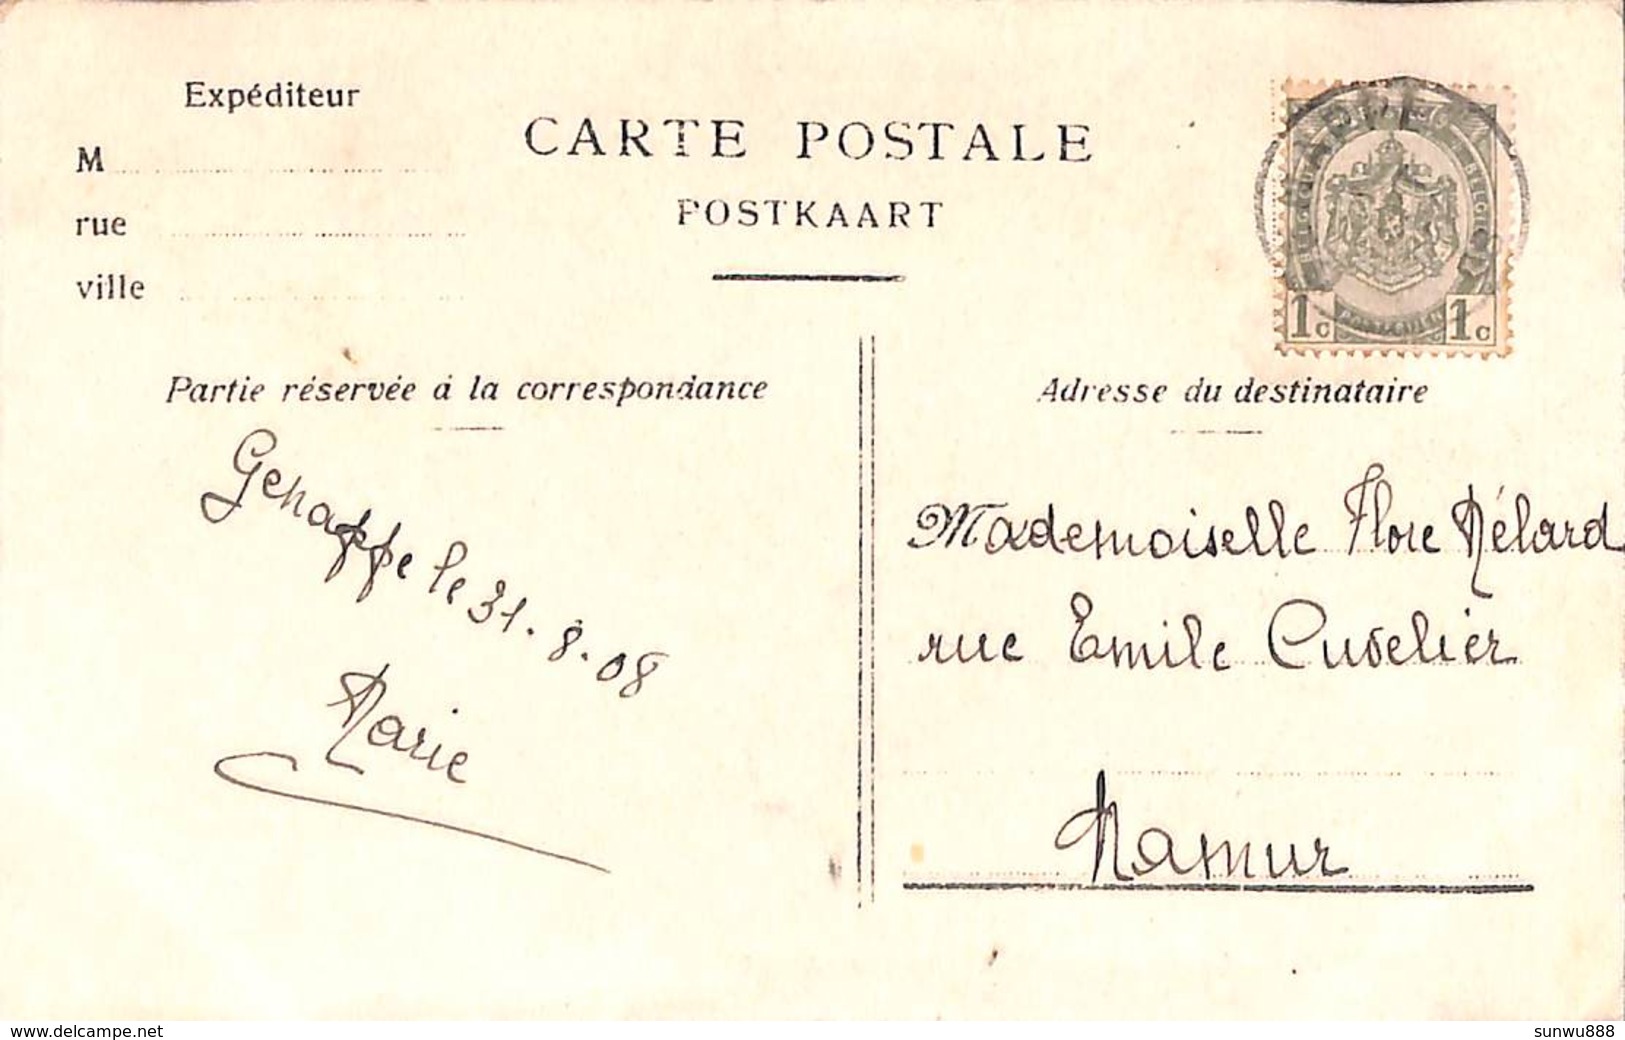 Expéditeur
M
rue
ville
CARTE POSTALE
POSTKAART
1c 1c
Partie réservée à la correspondance
Adresse du destinataire
Genappe le 31. 8. 08
Marie
Mademoiselle Flore Mélard
rue Emile Cuvelier
Namur
www.delcampe.net
sunwu888